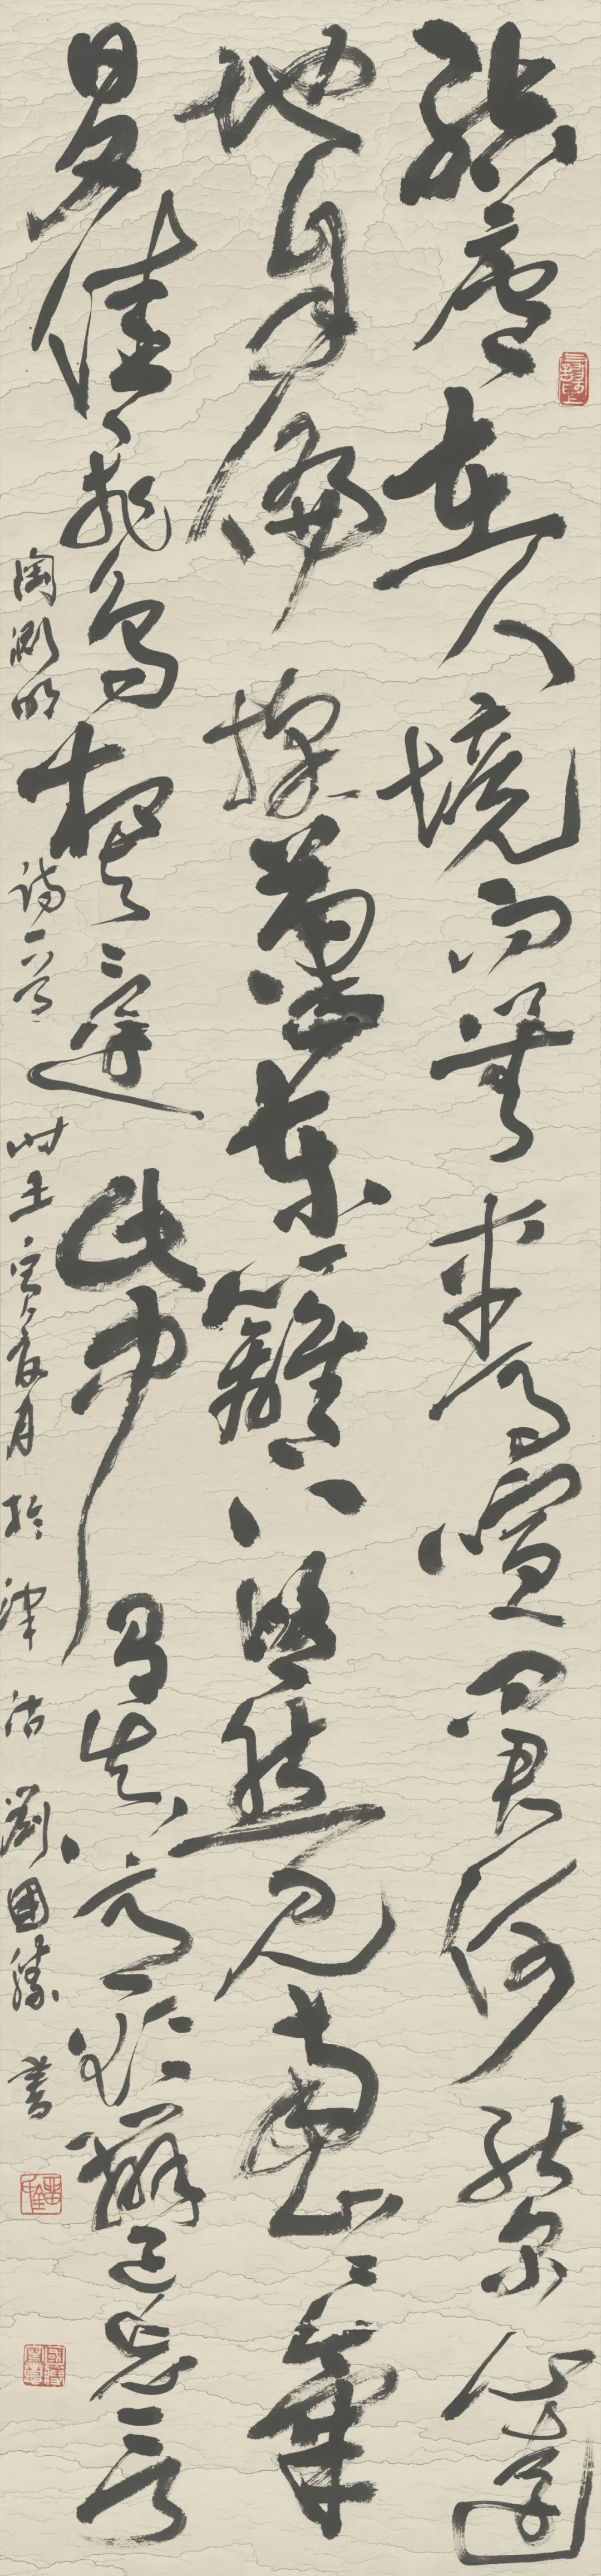 結廬在人境而無車馬喧問君何能尔心遠
地自偏採菊東籬下悠然見南山〻氣
日夕佳飛鳥相與還此中有真意欲辯已忘言
陶淵明詩一首 時壬寅夏月於津沽劉國勝書